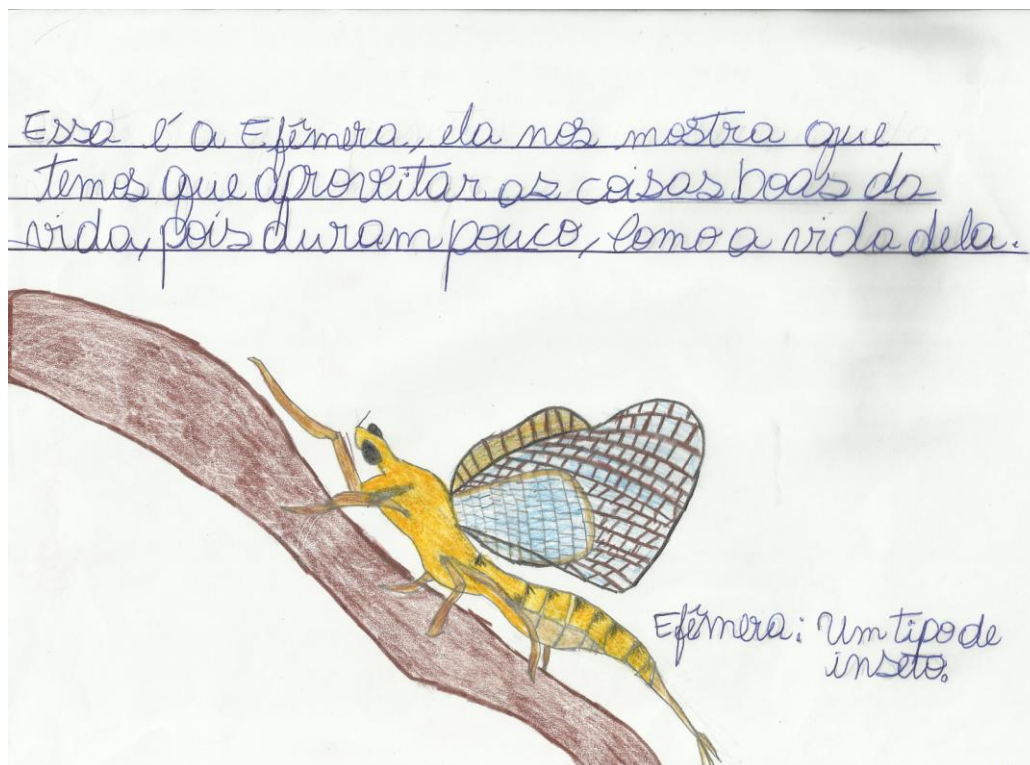 Essa é a Efêmera, ela nos mostra que
temos que aproveitar as coisas boas da
vida, pois duram pouco, como a vida dela.
Efêmera: Um tipo de
inseto.